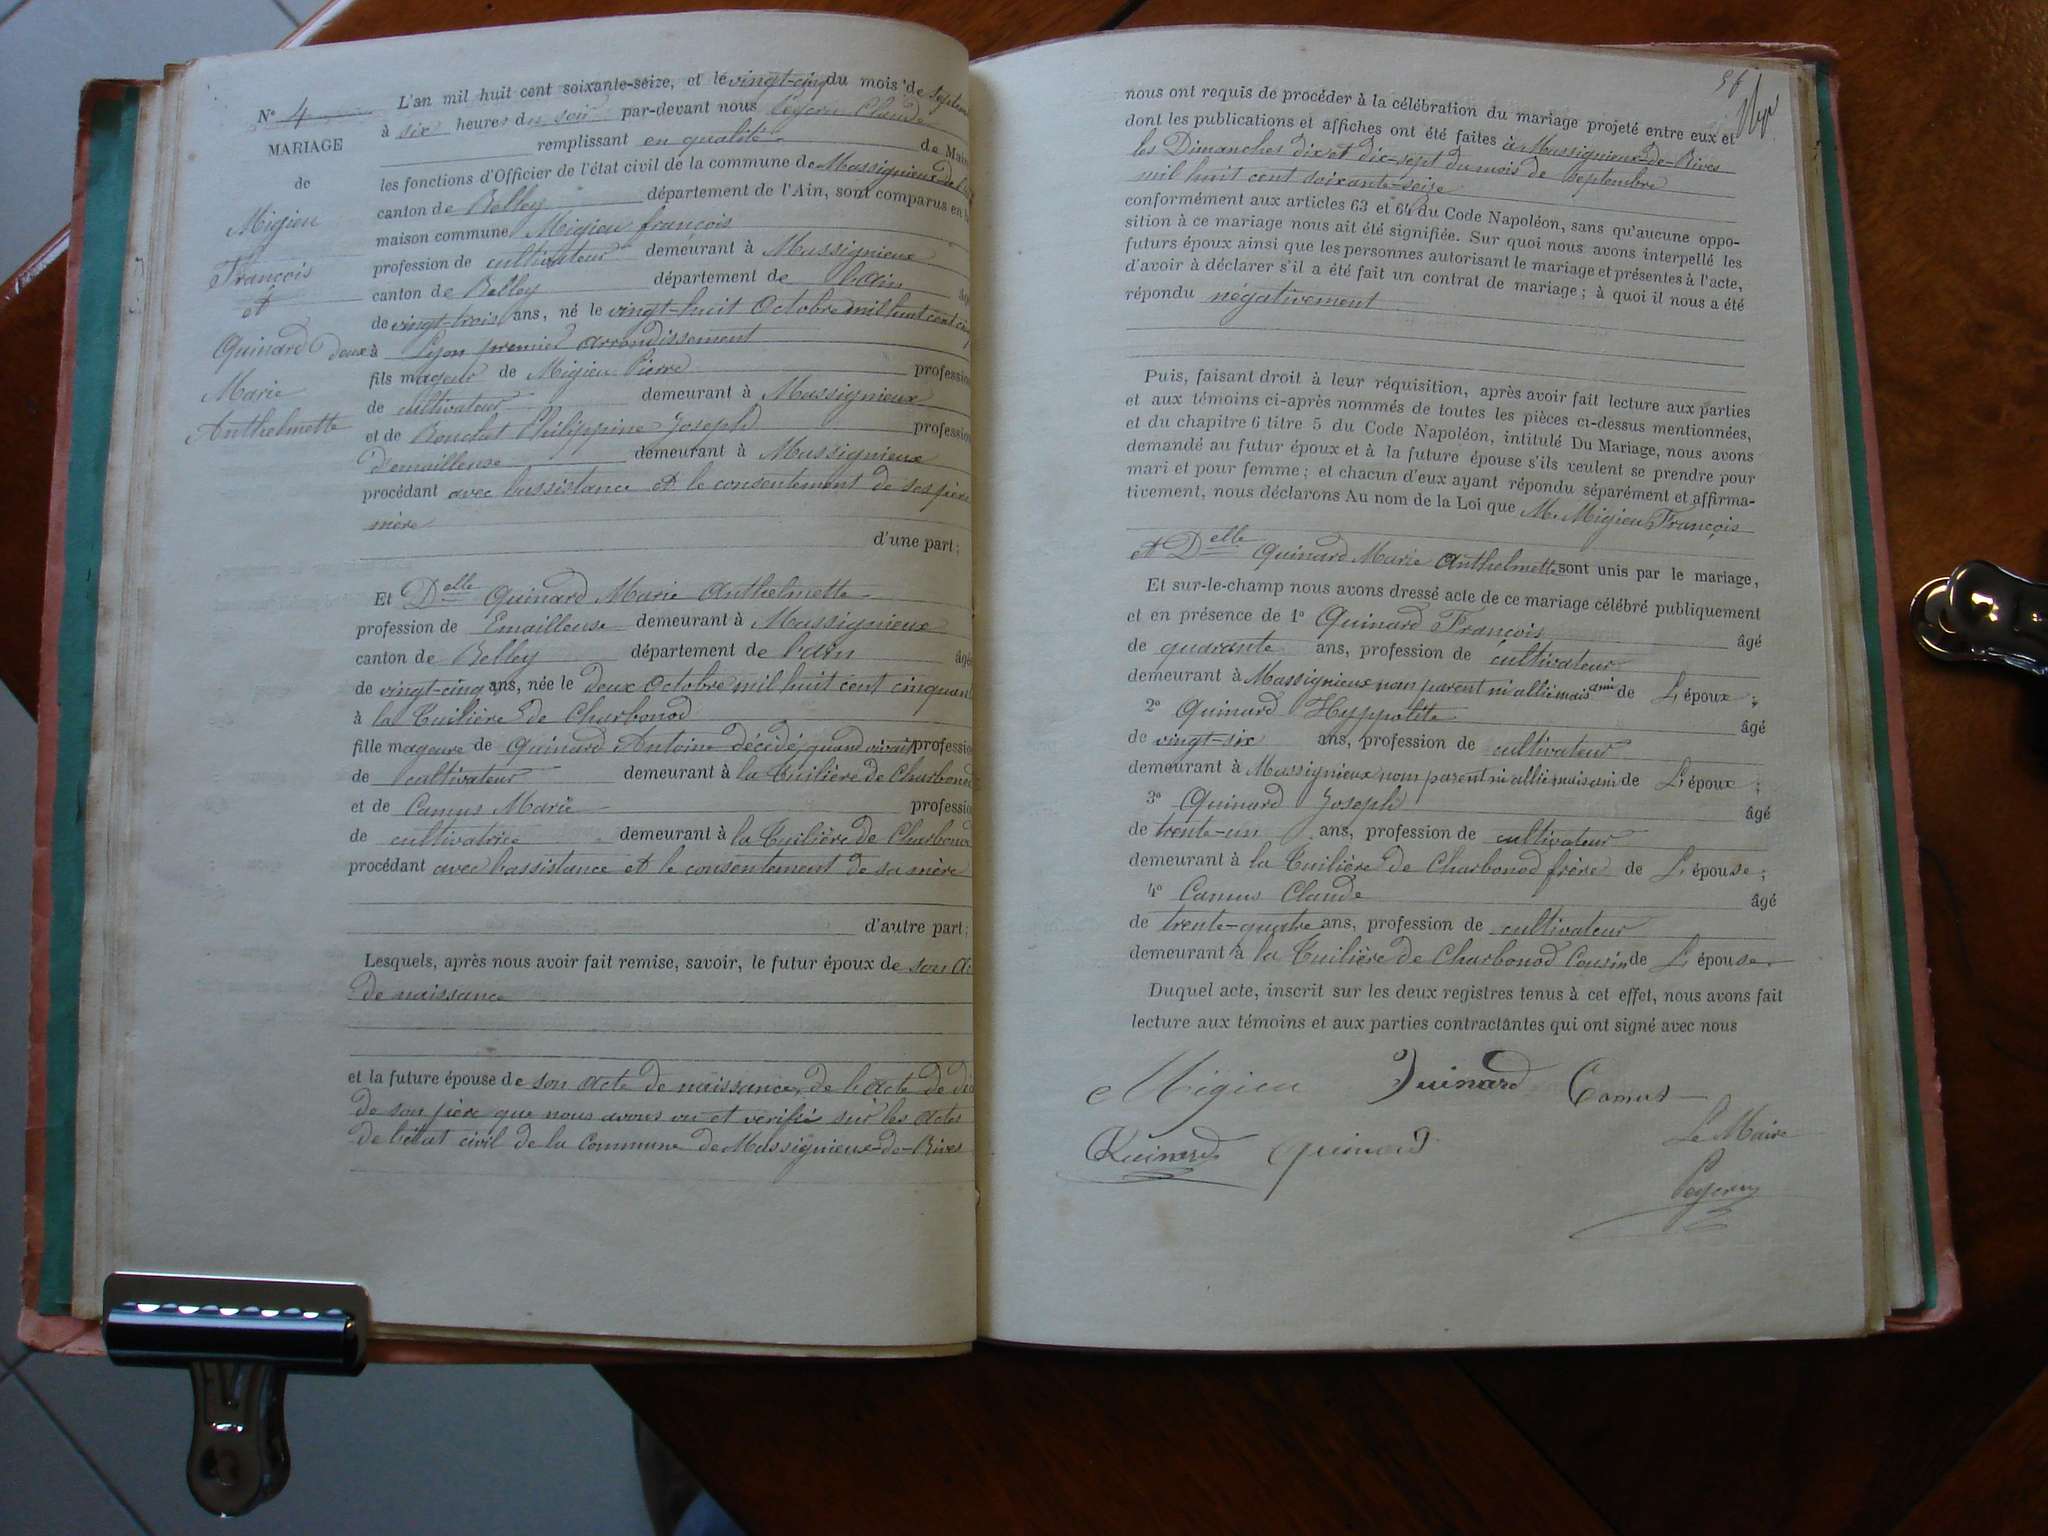 N° 4
MARIAGE
de
Migieu
François
et
Quinard
Marie
Anthelmette
L'an mil huit cent soixante-seize, et le vingt-cinq du mois de Septem
à six heures du soir par-devant nous Claude
remplissant en qualité de Mai
les fonctions d'Officier de l'état civil de la commune de Massignieux-de-
canton de Belley département de l'Ain, sont comparus en
maison commune Migieu françois
profession de cultivateur demeurant à Massignieux
canton de Belley département de l'ain âg
de vingt-trois ans, né le vingt-huit Octobre mil huit cent cinq
deux à Lyon premier arrondissement
fils majeur de Migieu Pierre professio
de cultivateur demeurant à Massignieux
et de Bouchet Philippine Joseph professio
d'emailleuse demeurant à Massignieux
procédant avec l'assistance et le consentement de ses père
mère
d'une part;
Et Delle Quinard Marie Anthelmette
profession de Emailleuse demeurant à Massignieux
canton de Belley département de l'ain âgé
de vingt-cinq ans, née le deux Octobre mil huit cent cinquan
à la Tuilière de Charbonod
fille majeure de Quinard Antoine décédé, quand vivait professio
de cultivateur demeurant à la Tuilière de Charbonod
et de Camus Marie professio
de cultivatrice demeurant à la Tuilière de Charbonod
procédant avec l'assistance et le consentement de sa mère
d'autre part;
Lesquels, après nous avoir fait remise, savoir, le futur époux de son a
de naissance
et la future épouse de son acte de naissance, de l'acte de dé
de son père que nous avons vu et vérifié sur les actes
de l'état civil de la Commune de Massignieux-de-Rives
56
nous ont requis de procéder à la célébration du mariage projeté entre eux et
dont les publications et affiches ont été faites à Massignieux-de-Rives
les Dimanches dix et dix-sept du mois de Septembre
mil huit cent soixante-seize
conformément aux articles 63 et 64 du Code Napoléon, sans qu'aucune oppo-
sition à ce mariage nous ait été signifiée. Sur quoi nous avons interpellé les
futurs époux ainsi que les personnes autorisant le mariage et présentes à l'acte,
d'avoir à déclarer s'il a été fait un contrat de mariage; à quoi il nous a été
répondu négativement
Puis, faisant droit à leur réquisition, après avoir fait lecture aux parties
et aux témoins ci-après nommés de toutes les pièces ci-dessus mentionnées,
et du chapitre 6 titre 5 du Code Napoléon, intitulé Du Mariage, nous avons
demandé au futur époux et à la future épouse s'ils veulent se prendre pour
mari et pour femme; et chacun d'eux ayant répondu séparément et affirma-
tivement, nous déclarons Au nom de la Loi que M. Migieu François
et Delle Quinard Marie Anthelmette sont unis par le mariage,
Et sur-le-champ nous avons dressé acte de ce mariage célébré publiquement
et en présence de 1° Quinard François âgé
de quarante ans, profession de cultivateur
demeurant à Massignieux non parent ni allié mais ami de L'époux;
2° Quinard Hyppolite âgé
de vingt-six ans, profession de cultivateur
demeurant à Massignieux non parent ni allié mais ami de L'époux;
3° Quinard Joseph âgé
de trente-un ans, profession de cultivateur
demeurant à la Tuilière de Charbonod frère de L'épouse;
4° Camus Claude âgé
de trente-quatre ans, profession de cultivateur
demeurant à la Tuilière de Charbonod Cousin de L'épouse.
Duquel acte, inscrit sur les deux registres tenus à cet effet, nous avons fait
lecture aux témoins et aux parties contractantes qui ont signé avec nous
Migieu Quinard Camus
Le Maire
Quinard Quinard